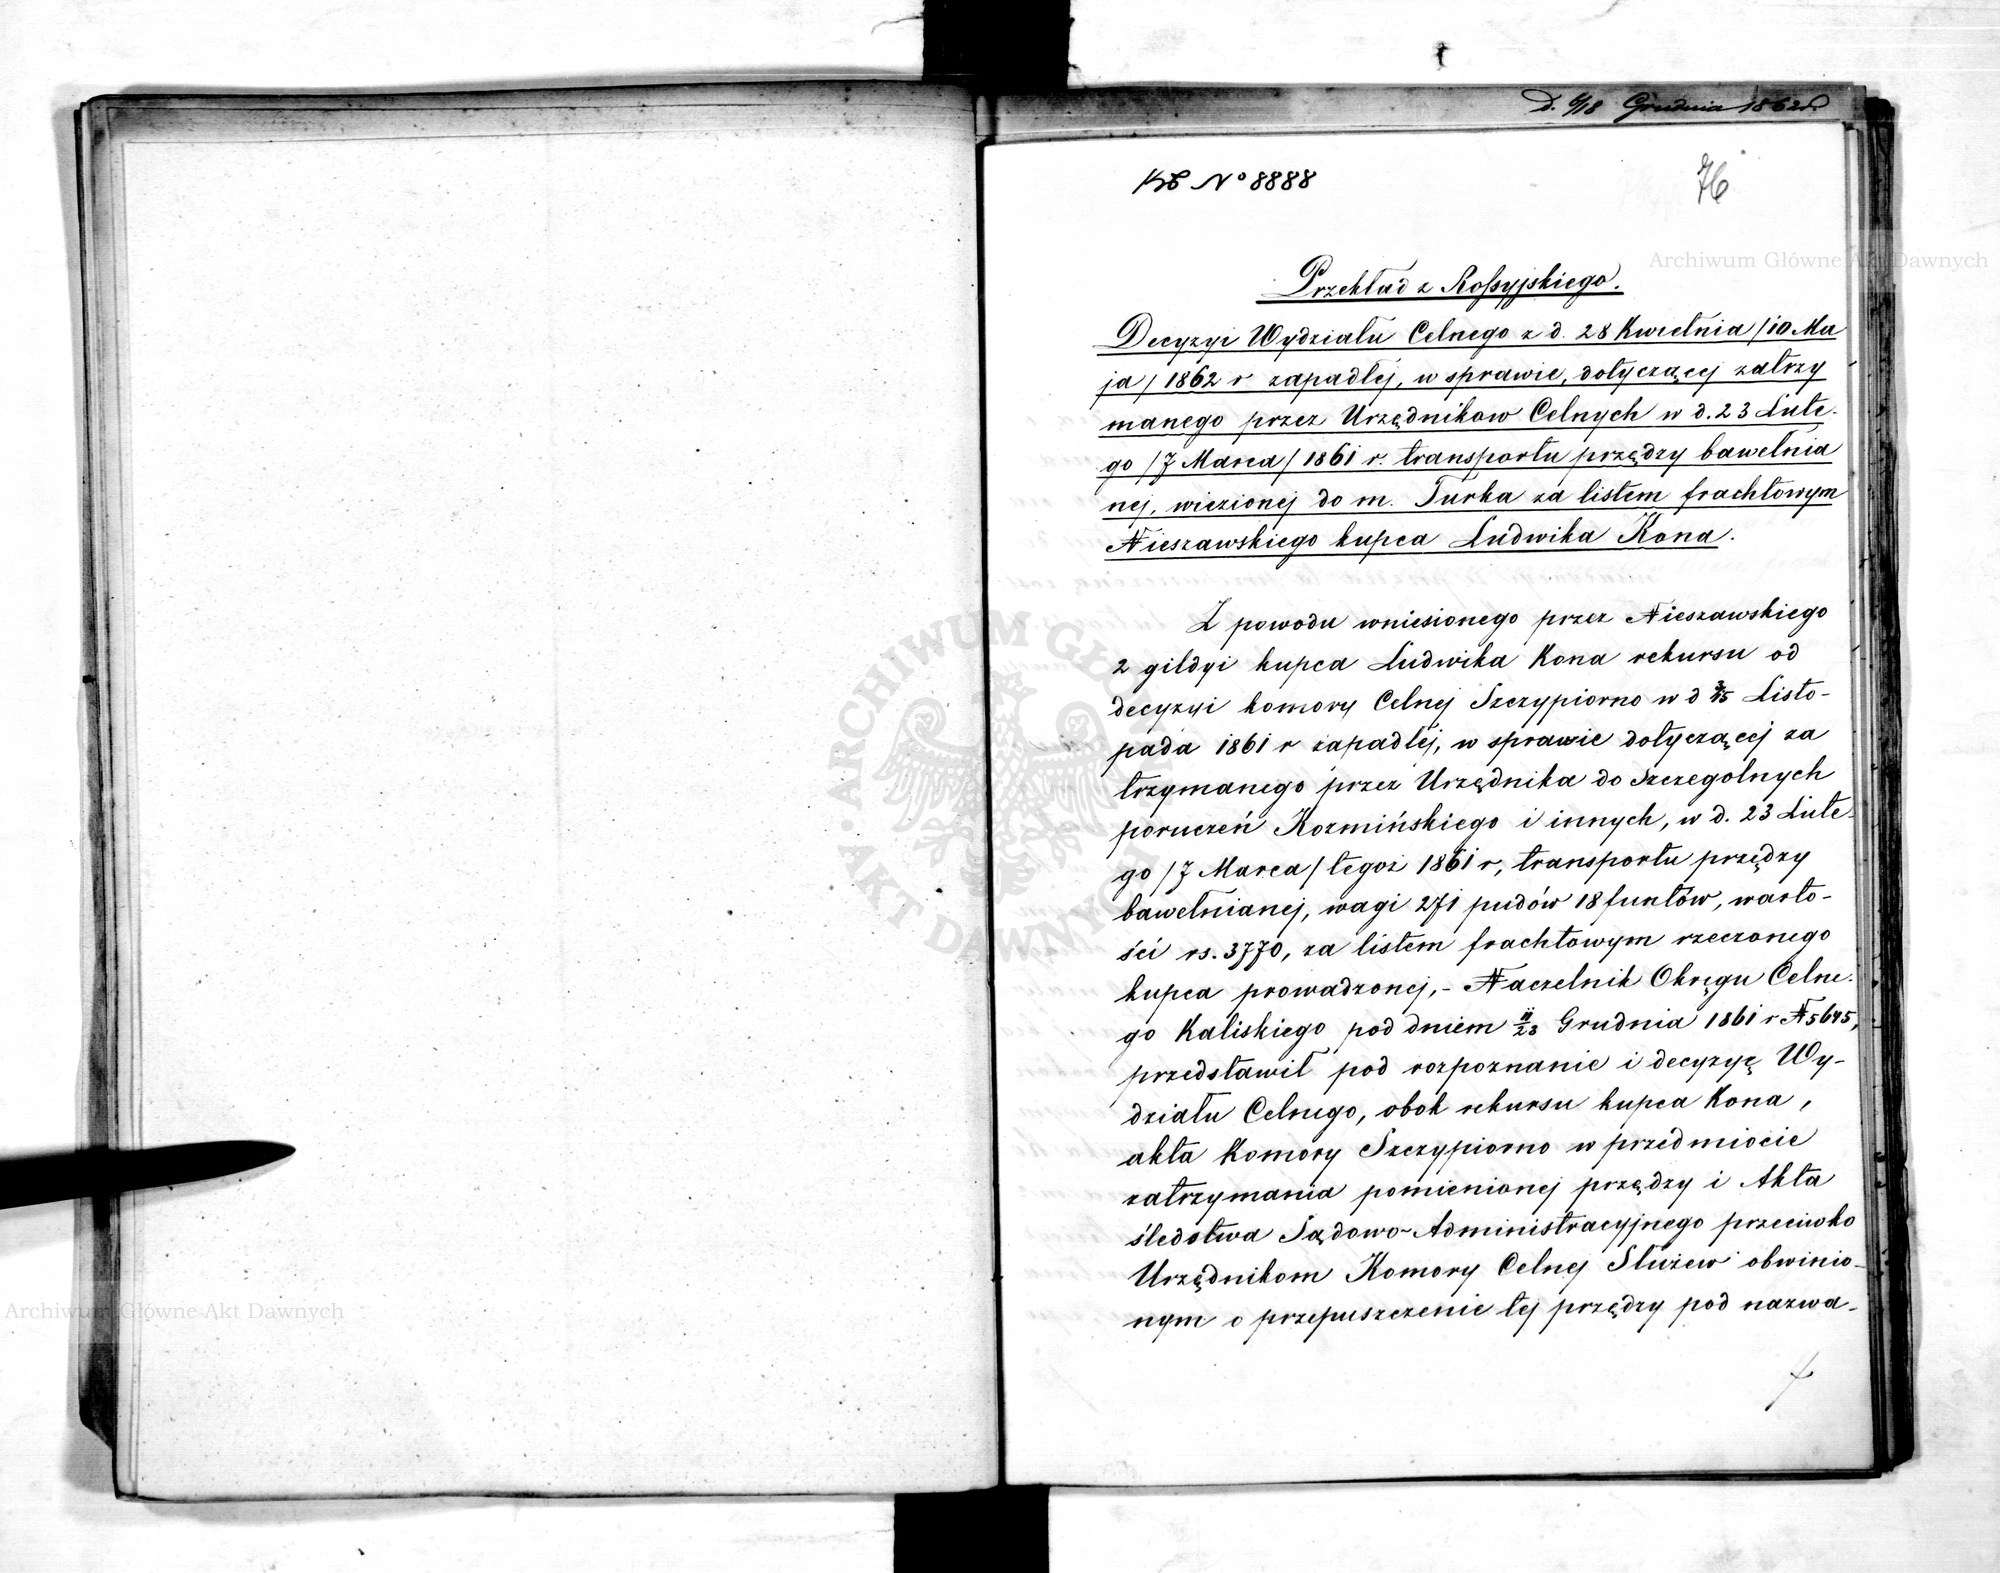 D. 6/18 Grudnia 1862 r.
No 8888
76
Przekład z Rossyjskiego.
Decyzyi Wydziału Celnego z d. 28 Kwietnia /10 Ma
ja/ 1862 r zapadłej, w sprawie, dotyczącej zatrzy
manego przez Urzędnikow Celnych w d. 23 Lute-
go /7 Marca/ 1861 r. transportu przędzy bawełnia
nej, wiezionej do m. Turka za listem frachtowym
Nieszawskiego kupca Ludwika Kona.
Z powodu wniesionego przez Nieszawskiego
2 gildyi kupca Ludwika Kona rekursu od
decyzyi komory Celnej Szczypiorno w d 3/15 Listo-
pada 1861 r zapadłej, w sprawie dotyczącej za
trzymanego przez Urzędnika do Szczegolnych
poruczeń Kozmińskiego i innych, w d. 23 Lute-
go /7 Marca/ tegoż 1861 r, transportu przędzy
bawełnianej, wagi 271 pudów 18 funtów, warto-
ści rs. 3770, za listem frachtowym rzeczonego
kupca prowadzonej,- Naczelnik Okręgu Celne-
go Kaliskiego pod dniem 11/23 Grudnia 1861 r N 5645,
przedstawił pod rozpoznanie i decyzyę Wy-
działu Celnego, obok rekursu kupca Kona,
akta Komory Szczypiorno w przedmiocie
zatrzymania pomienionej przędzy i Akta
śledstwa Sądowo-Administracyjnego przeciwko
Urzędnikom Komory Celnej Służew obwinio-
nym o przepuszczenie tej przędzy pod nazwa-
Archiwum Główne Akt Dawnych
ARCHIWUM GŁÓWNE AKT DAWNYCH
Archiwum Główne Akt Dawnych